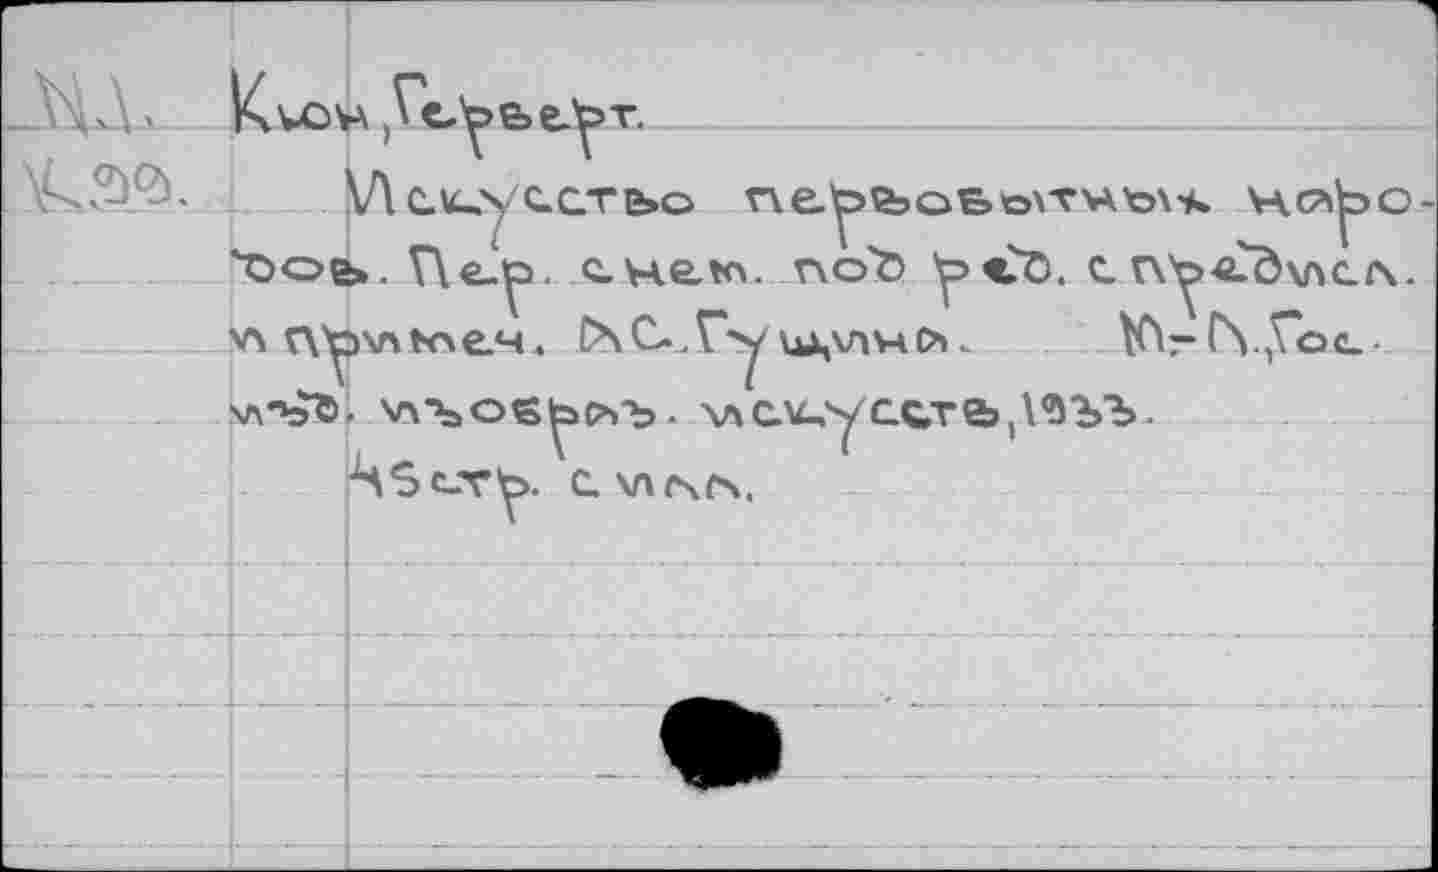 Кюн, Герберт.
К.99.
Искусство первобытных наро-
дов. Пер. с нем. под ред. с предисл.
и примеч. А.С.Гущина. М.-Л.,Гос.
изд. изобраз. искусств,1933.
45 стр. с илл.